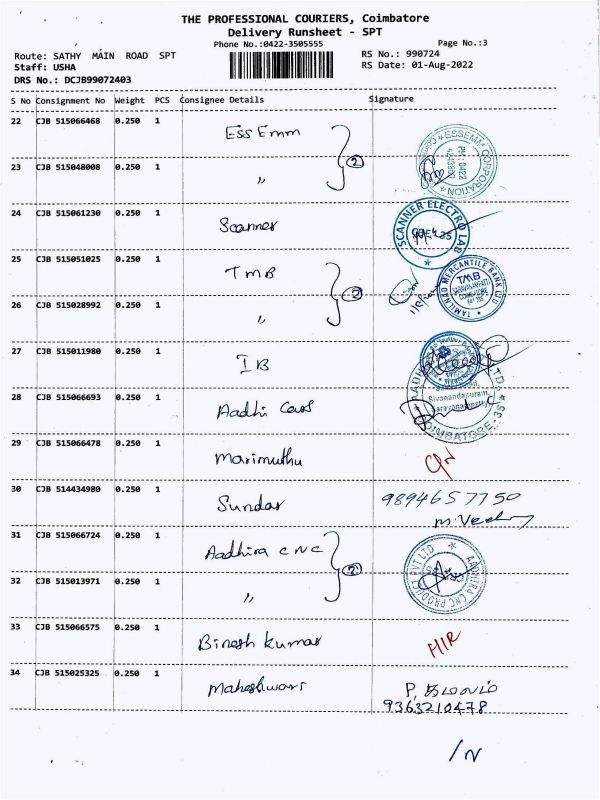 THE PROFESSIONAL COURIERS, Coimbatore
Delivery Runsheet - SPT
Phone No.:0422-3505555
Page No.:3
Route: SATHY MAIN ROAD SPT
RS No.: 990724
Staff: USHA
RS Date: 01-Aug-2022
DRS No.: DCJB99072403
S No Consignment No Weight PCS Consignee Details Signature
22 CJB 515066468 0.250 1 Ess Emm
2
ESSEMM CORPORATION
PH: 0422
23 CJB 515048008 0.250 1 "
24 CJB 515061230 0.250 1 Scanner
SCANNER ELECTRO LAB
25 CJB 515051025 0.250 1 TMB
2
TAMILNAD MERCANTILE BANK LTD
TMB
COIMBATORE
26 CJB 515028992 0.250 1 "
27 CJB 515011980 0.250 1 IB
28 CJB 515066693 0.250 1 Aadhi Cars
Sivanandapuram,
Saravanampatty
COIMBATORE-35
29 CJB 515066478 0.250 1 Marimuthu
30 CJB 514434980 0.250 1 Sundar
9894657750
31 CJB 515066724 0.250 1 Aadhira CNC
2
AADHIRA CNC PRODUCT PVT LTD
32 CJB 515013971 0.250 1 "
33 CJB 515066575 0.250 1 Binesh kumar
34 CJB 515025325 0.250 1 Maheshwari
9363210478